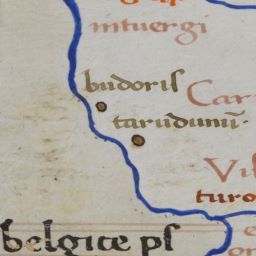 intuergi
budoris
Car
tarudunū·
Vis
turo
belgice ps